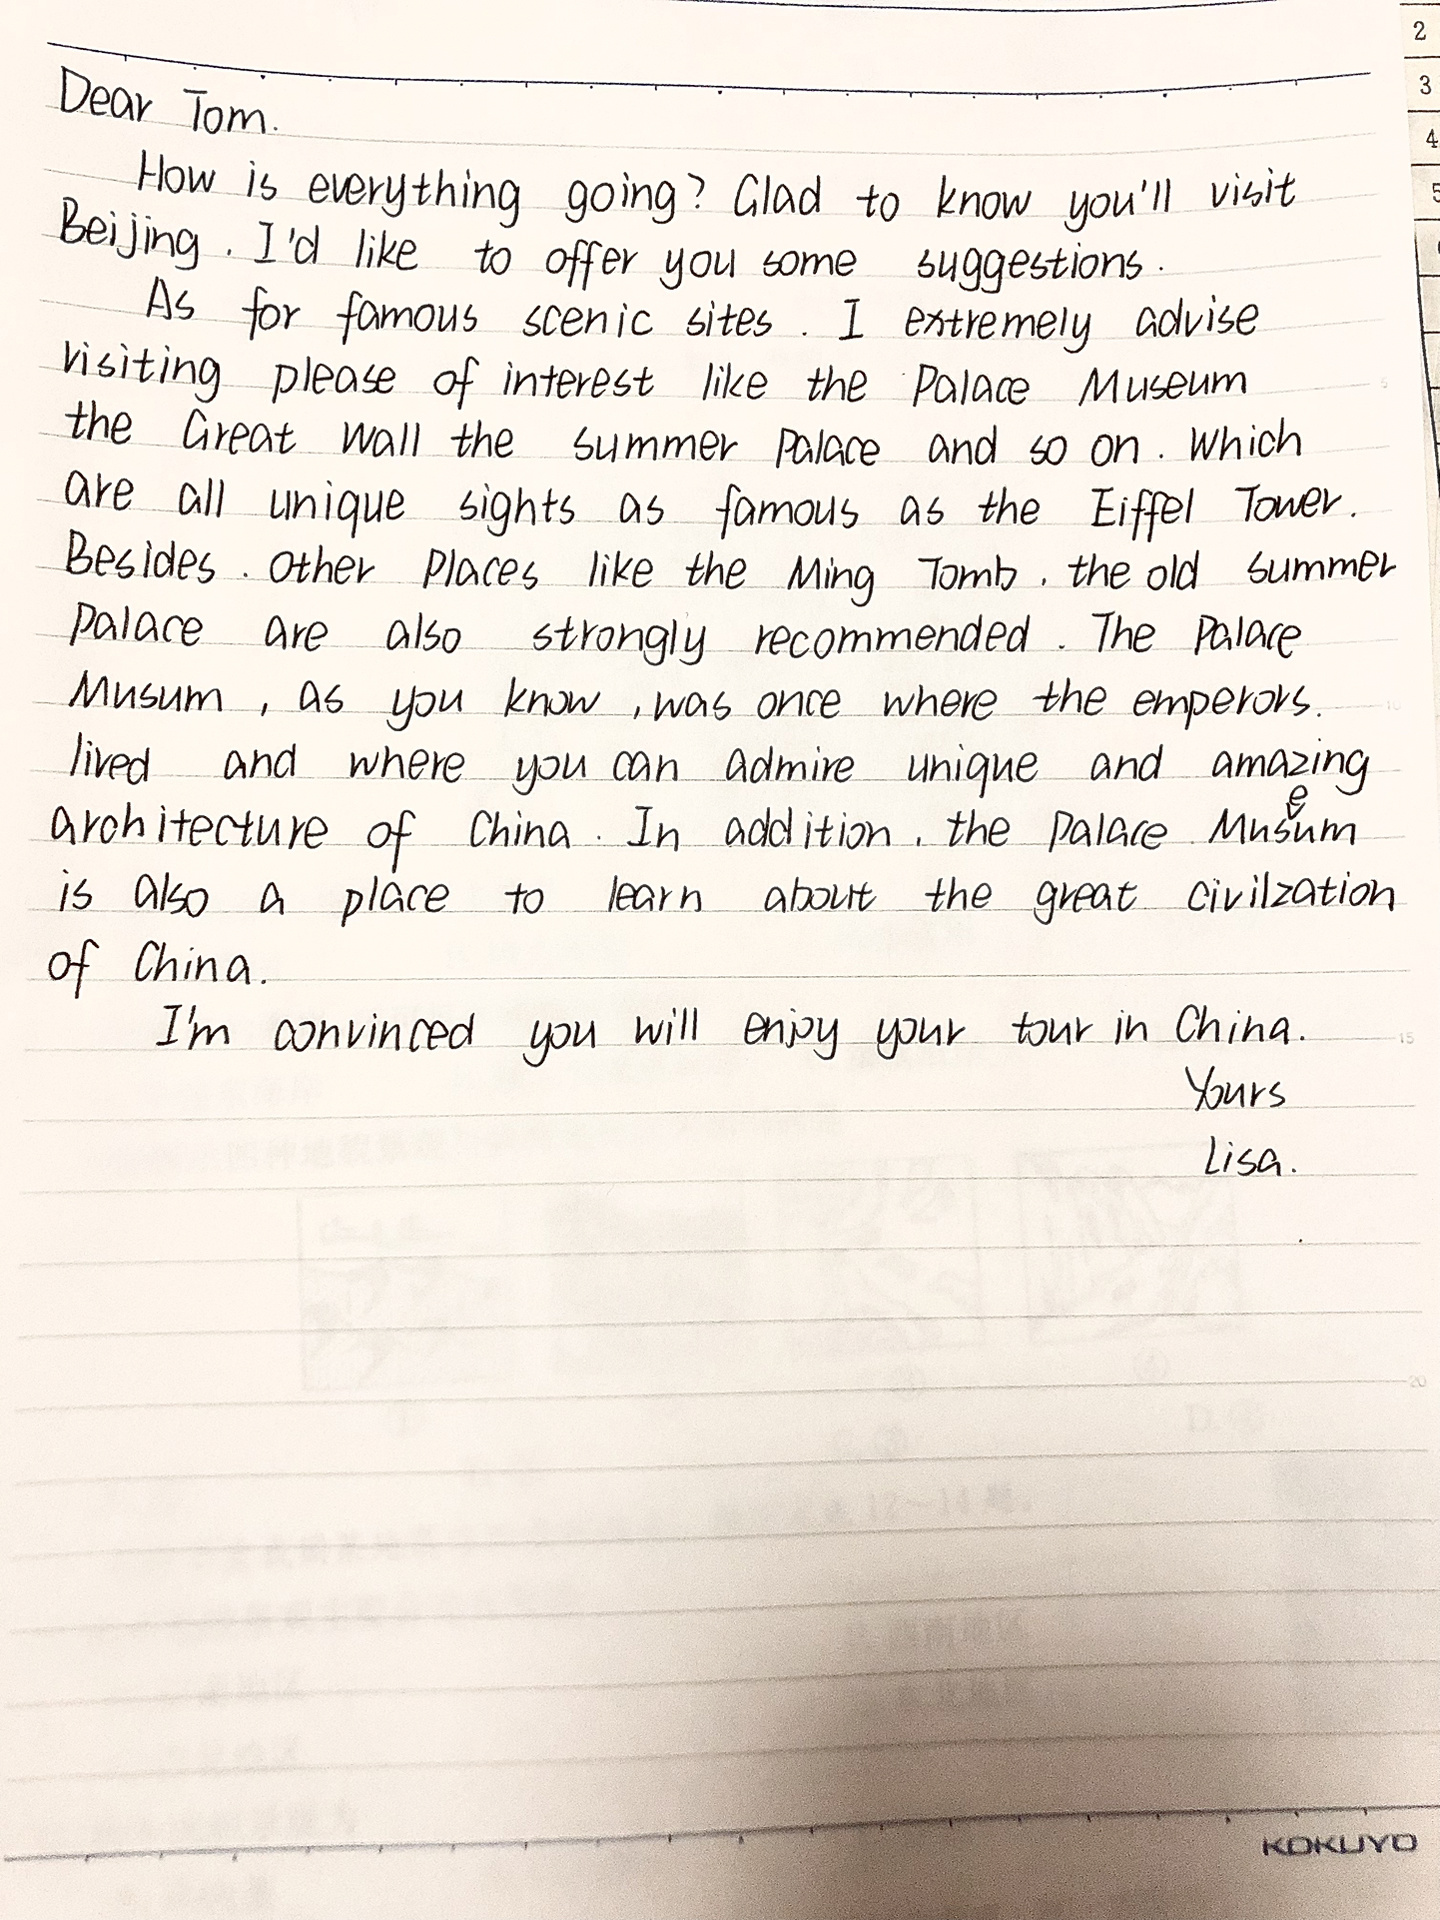 Dear Tom.
How is everything going? Glad to know you'll visit
Beijing. I'd like to offer you some suggestions.
As for famous scenic sites. I extremely advise
visiting please of interest like the Palace Museum
the Great Wall the summer Palace and so on. Which
are all unique sights as famous as the Eiffel Tower.
Besides. Other Places like the Ming Tomb. the old summer
Palace are also strongly recommended. The Palace
Musum, as you know, was once where the emperors.
lived and where you can admire unique and amazing
architecture of China. In addition, the Palace Museum
is also a place to learn about the great civilzation
of China.
I'm convinced you will enjoy your tour in China.
Yours
Lisa.
KOKUYO
2
3
4
5
5
10
15
20